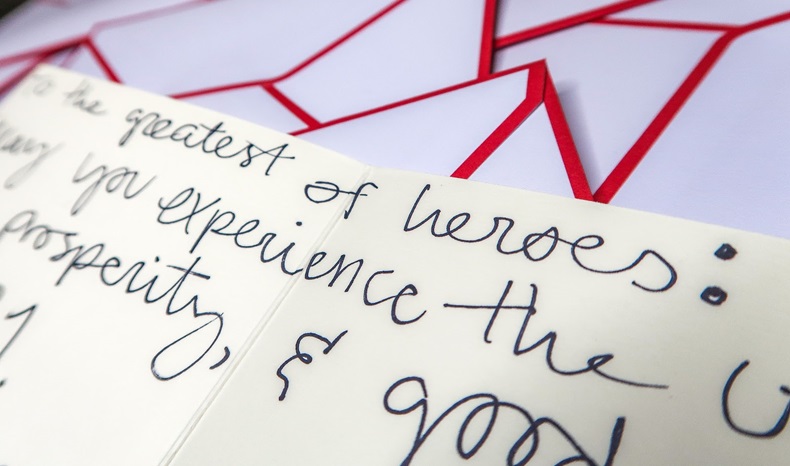 to the greatest of heroes:
may you experience the
prosperity, & good